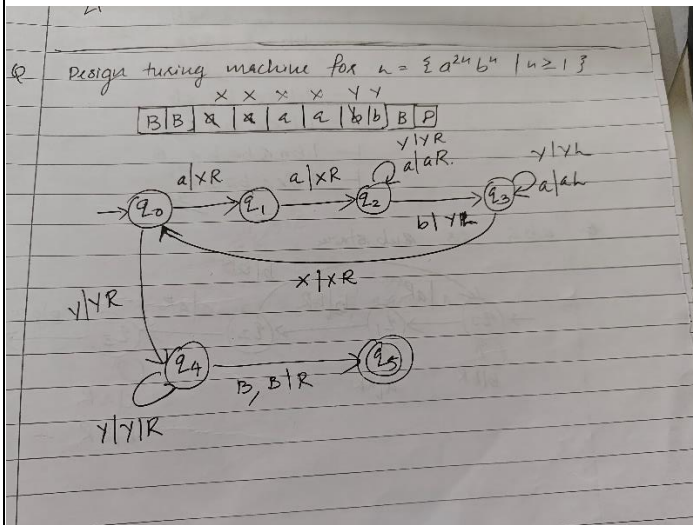 Q Design turing machine for L = { a²ⁿ bⁿ | n ≥ 1 }
X X X X Y Y
B B a a a a b b B B
y|yR
a|aR.
a|XR a|XR y|yL
a|aL
→ q0 q1 q2 q3
b|YL
X|XR
y|yR
q4 B, B|R q5
y|y|R